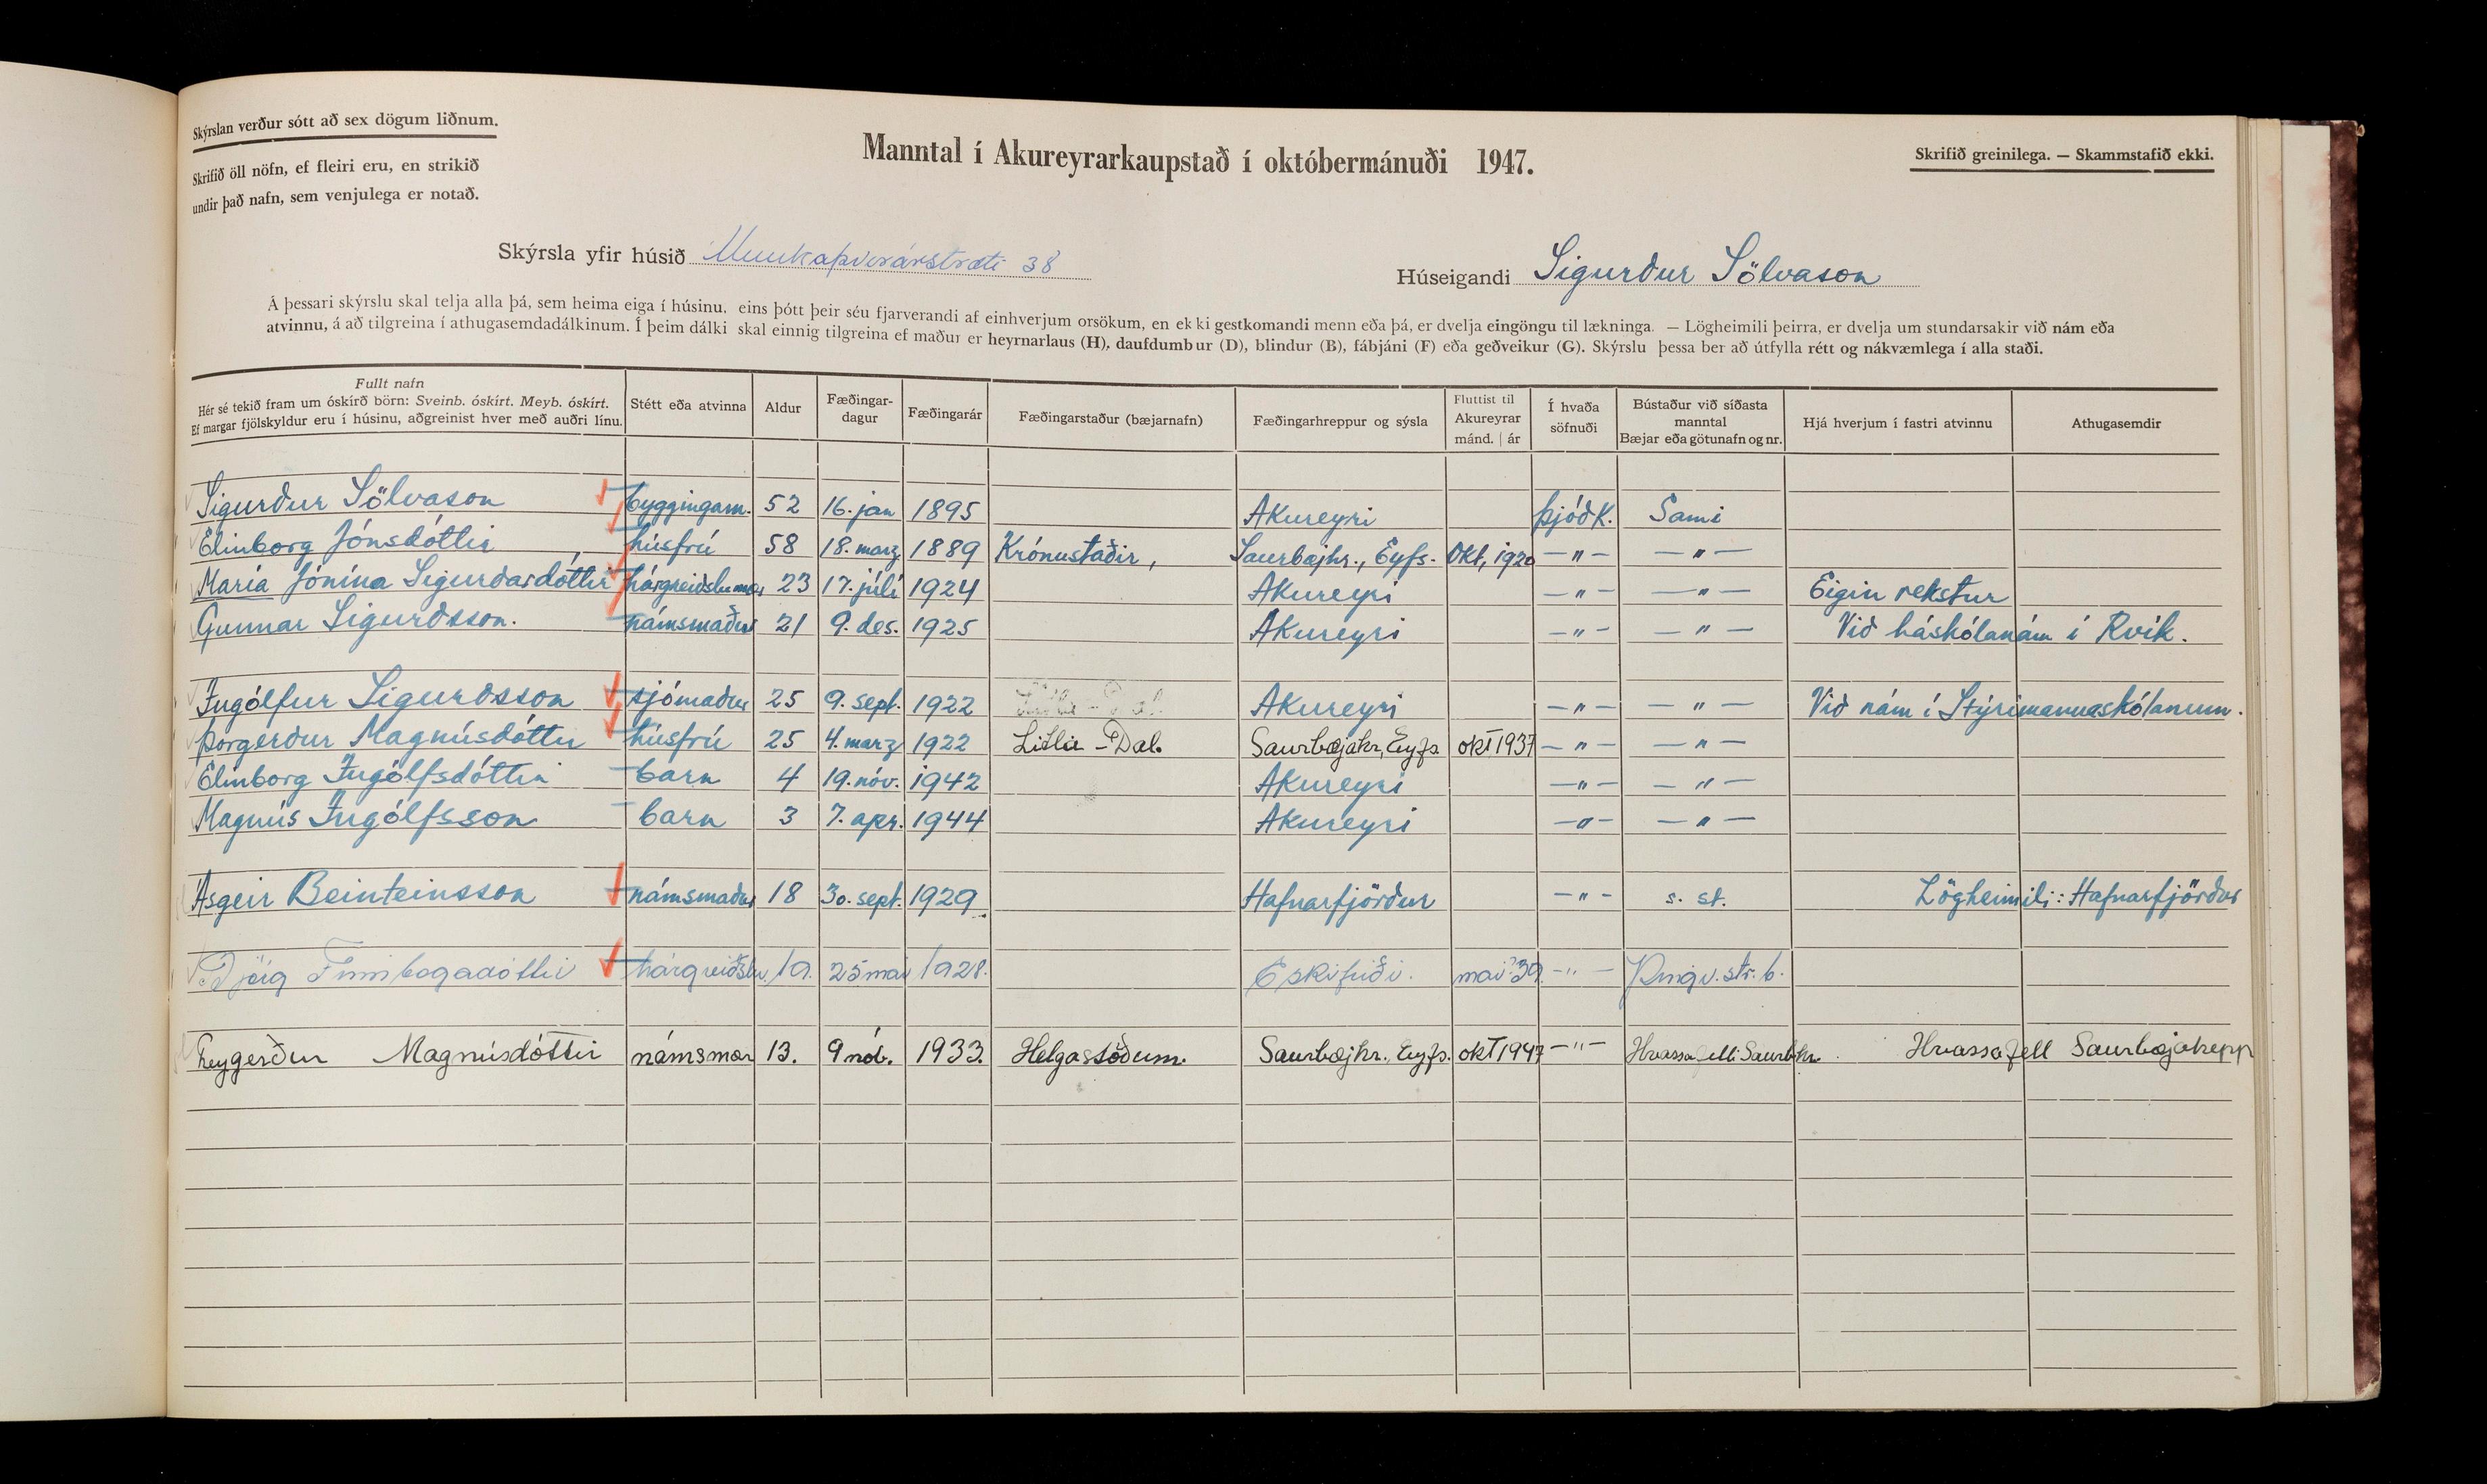 Skýrslan verður sótt að sex dögum liðnum.
Skrifið öll nöfn, ef fleiri eru, en strikið
undir það nafn, sem venjulega er notað.
Manntal í Akureyrarkaupstað í októbermánuði 1947.
Skrifið greinilega. — Skammstafið ekki.
Skýrsla yfir húsið Munkaþverárstræti 38
Húseigandi Sigurður Sölvason
Á þessari skýrslu skal telja alla þá, sem heima eiga í húsinu, eins þótt þeir séu fjarverandi af einhverjum orsökum, en ekki gestkomandi menn eða þá, er dvelja eingöngu til lækninga. — Lögheimili þeirra, er dvelja um stundarsakir við nám eða
atvinnu, á að tilgreina í athugasemdadálkinum. Í þeim dálki skal einnig tilgreina ef maður er heyrnarlaus (H), daufdumbur (D), blindur (B), fábjáni (F) eða geðveikur (G). Skýrslu þessa ber að útfylla rétt og nákvæmlega í alla staði.
Fullt nafn
Hér sé tekið fram um óskírð börn: Sveinb. óskírt. Meyb. óskírt.
Ef margar fjölskyldur eru í húsinu, aðgreinist hver með auðri línu.
Stétt eða atvinna
Aldur
Fæðingar-
dagur
Fæðingarár
Fæðingarstaður (bæjarnafn)
Fæðingarhreppur og sýsla
Fluttist til
Akureyrar
mánd. | ár
Í hvaða
söfnuði
Bústaður við síðasta
manntal
Bæjar eða götunafn og nr.
Hjá hverjum í fastri atvinnu
Athugasemdir
Sigurður Sölvason byggingam. 52 16. jan 1895 Akureyri Þjóðk. Sami
Elinborg Jónsdóttir húsfrú 58 18. marz 1889 Krónustaðir, Saurbæjhr., Eyfs. Okt, 1920 — " — — " —
María Jónína Sigurðardóttir hárgreiðslumær 23 17. júlí 1924 Akureyri — " — — " — Eigin rekstur
Gunnar Sigurðsson. námsmaður 21 9. des. 1925 Akureyri — " — — " — Við háskólanám í Rvík.
Ingólfur Sigurðsson sjómaður 25 9. sept. 1922 Akureyri — " — — " — Við nám í Stýrimannaskólanum.
Þorgerður Magnúsdóttir húsfrú 25 4. marz 1922 Litli - Dal. Saurbæjahr, Eyfs. okt 1937 — " — — " —
Elinborg Ingólfsdóttir barn 4 19. nóv. 1942 Akureyri — " — — " —
Magnús Ingólfsson barn 3 7. apr. 1944 Akureyri — " — — " —
Ásgeir Beinteinsson námsmaður 18 30. sept. 1929 Hafnarfjörður — " — s. st. Lögheimili: Hafnarfjörður
Finnbogadóttir hárgreiðslu. 19. 25 mai 1928. Eskifirði. mai '39. — " — Þingv. str. 6.
Freygerður Magnúsdóttir námsmær 13. 9 nóv. 1933. Helgastöðum. Saurbæjhr. Eyfs. okt 1947 — " — Hvassafelli Saurbhr. Hvassafell Saurbæjahrepp